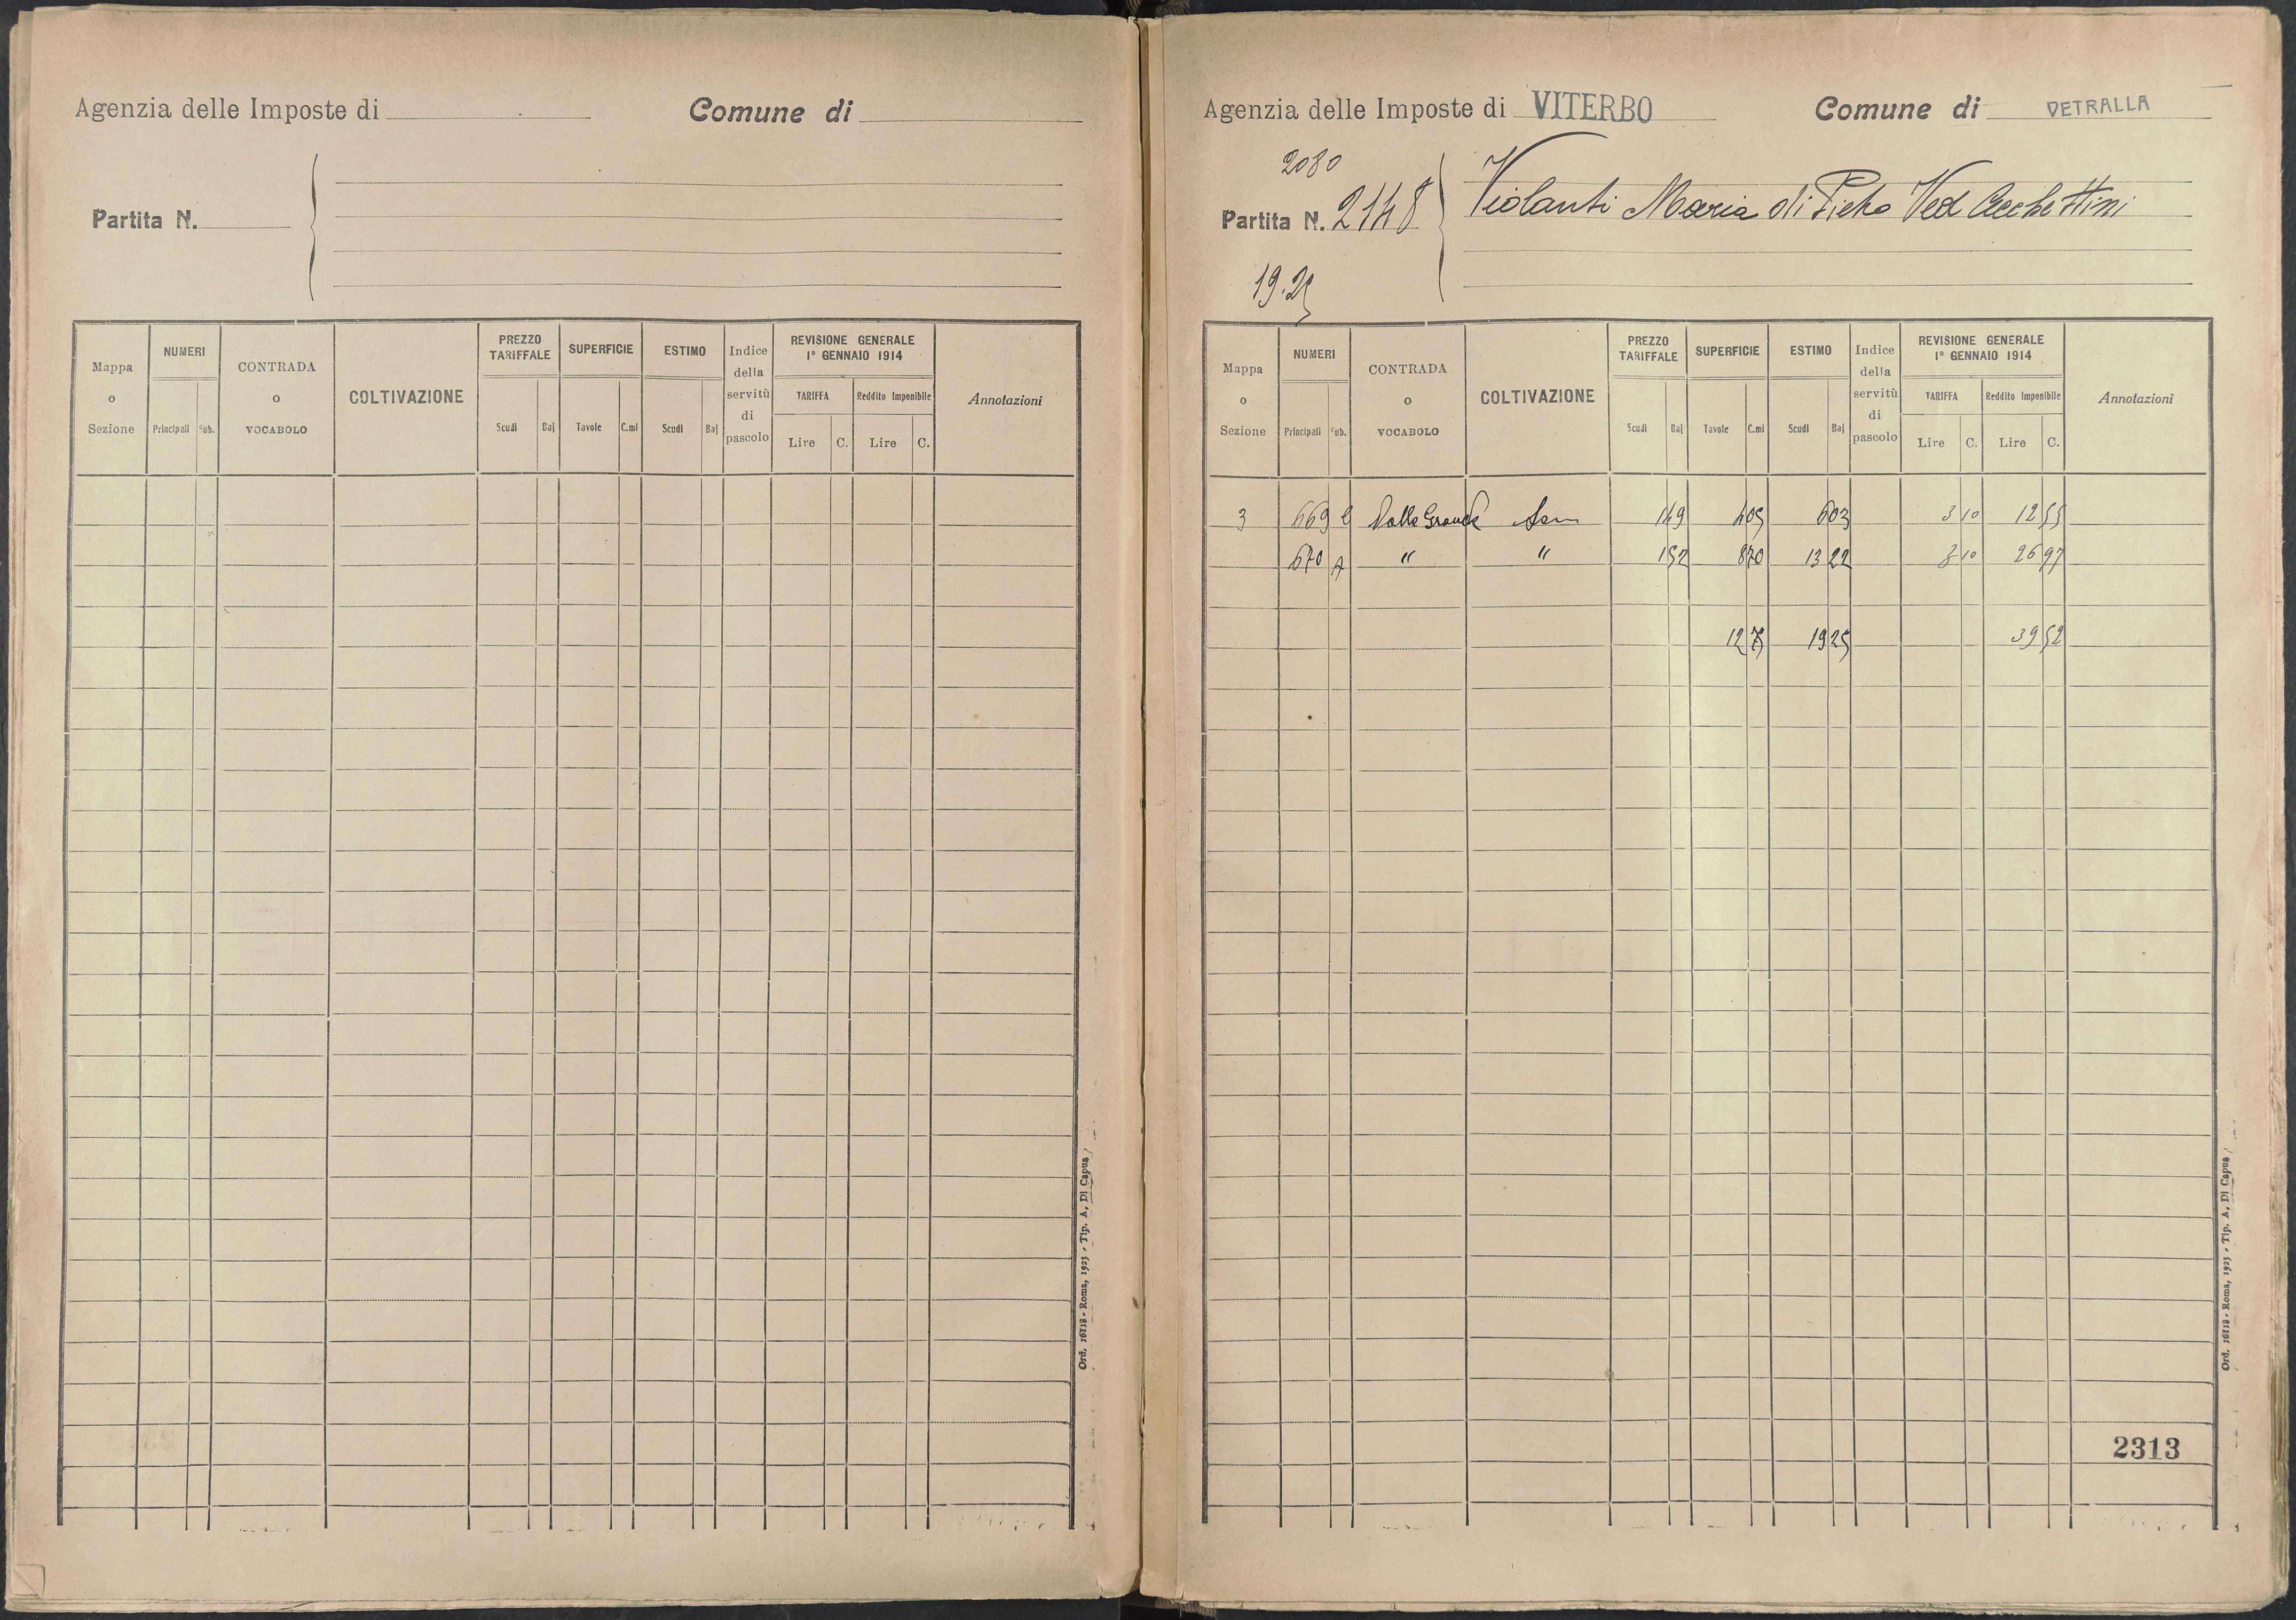 Agenzia delle Imposte di
Comune di
Partita N.
Mappa o Sezione
NUMERI
Principali
Sub.
CONTRADA o VOCABOLO
COLTIVAZIONE
PREZZO TARIFFALE
Scudi
Baj
SUPERFICIE
Tavole
C.mi
ESTIMO
Scudi
Baj
Indice della servitù di pascolo
REVISIONE GENERALE
1° GENNAIO 1914
TARIFFA
Lire
C.
Reddito Imponibile
Lire
C.
Annotazioni
Ord. 16118 - Roma, 1923 - Tip. A. Di Capua
Agenzia delle Imposte di VITERBO
Comune di VETRALLA
2080
Partita N. 2148
Violanti Maria di Pietro Ved Cecchettini
19.25
Mappa o Sezione
NUMERI
Principali
Sub.
CONTRADA o VOCABOLO
COLTIVAZIONE
PREZZO TARIFFALE
Scudi
Baj
SUPERFICIE
Tavole
C.mi
ESTIMO
Scudi
Baj
Indice della servitù di pascolo
REVISIONE GENERALE
1° GENNAIO 1914
TARIFFA
Lire
C.
Reddito Imponibile
Lire
C.
Annotazioni
3 669 Valle Grande Sem 1 49 4 05 6 03 3 10 12 55
670 A " " 1 52 8 70 13 22 3 10 26 97
12 75 19 25 39 52
2313
Ord. 16118 - Roma, 1923 - Tip. A. Di Capua